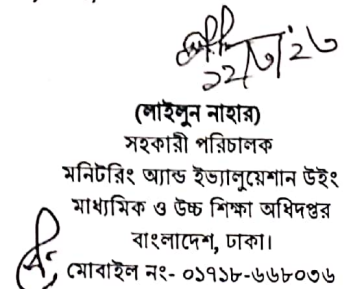 ১২/৩/২৩
(লাইলুন নাহার)
সহকারী পরিচালক
মনিটরিং অ্যান্ড ইভ্যালুয়েশান উইং
মাধ্যমিক ও উচ্চ শিক্ষা অধিদপ্তর
বাংলাদেশ, ঢাকা।
মোবাইল নং- ০১৭১৮-৬৬৮০৩৬